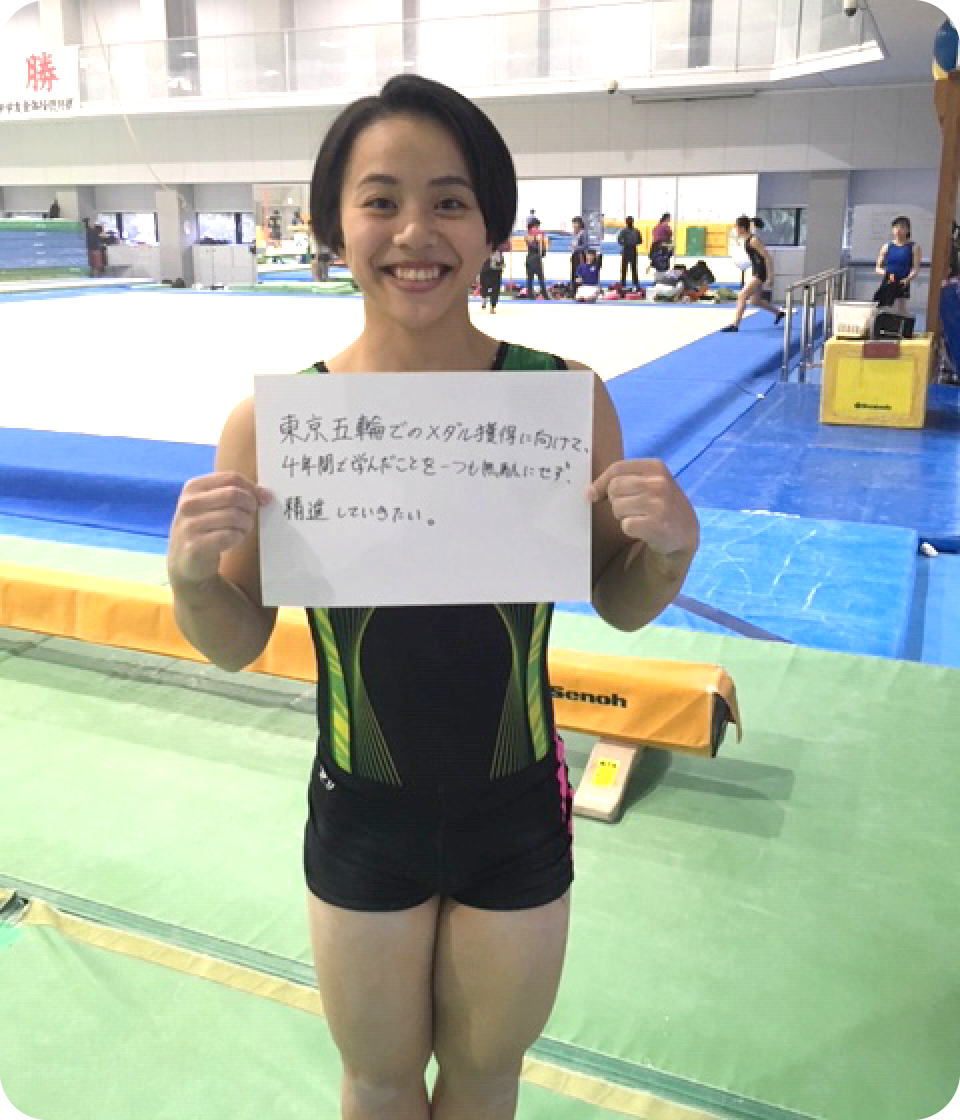 勝
東京五輪でのメダル獲得に向けて、
4年間で学んだことを一つも無駄にせず、
精進していきたい。
Senoh
Senoh